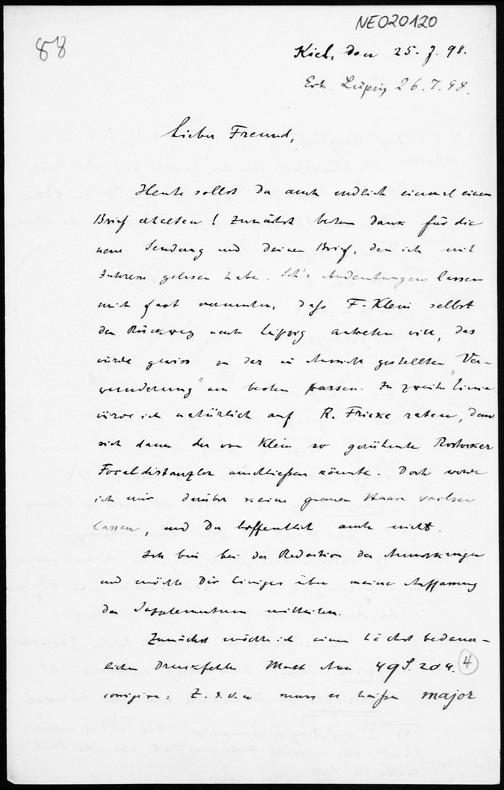 NE020120
88
Kiel, den 25.7.98.
Erh. Leipzig 26.7.98.
Lieber Freund,
Heute sollst Du auch endlich einmal einen
Brief erhalten! Zunächst besten Dank für die
neue Sendung und Deinen Brief, den ich mit
Interesse gelesen habe. Andeutungen lassen
mich fast vermuten, daß F. Klein selbst
den Rückweg nach Leipzig antreten will, das
würde gewiss zu der in Aussicht gestellten "Ver-
wunderung" am besten passen. In zweiter Linie
würde ich natürlich auf R. Fricke raten, dem
sich dann der von Klein so gerühmte Rostocker
anschließen könnte. Doch werde
ich mir darüber keine grauen Haare wachsen
lassen, und Du hoffentlich auch nicht.
Ich bin bei der Redaction der Anmerkungen
und möchte Dir Einiges über meine Auffassung
des Supplementum mitteilen.
Zunächst möchte ich einen höchst bedauer-
lichen Druckfehler Math Ann 49 S. 204.
corrigiren: Z. 5 v. u. muss es heißen major
4